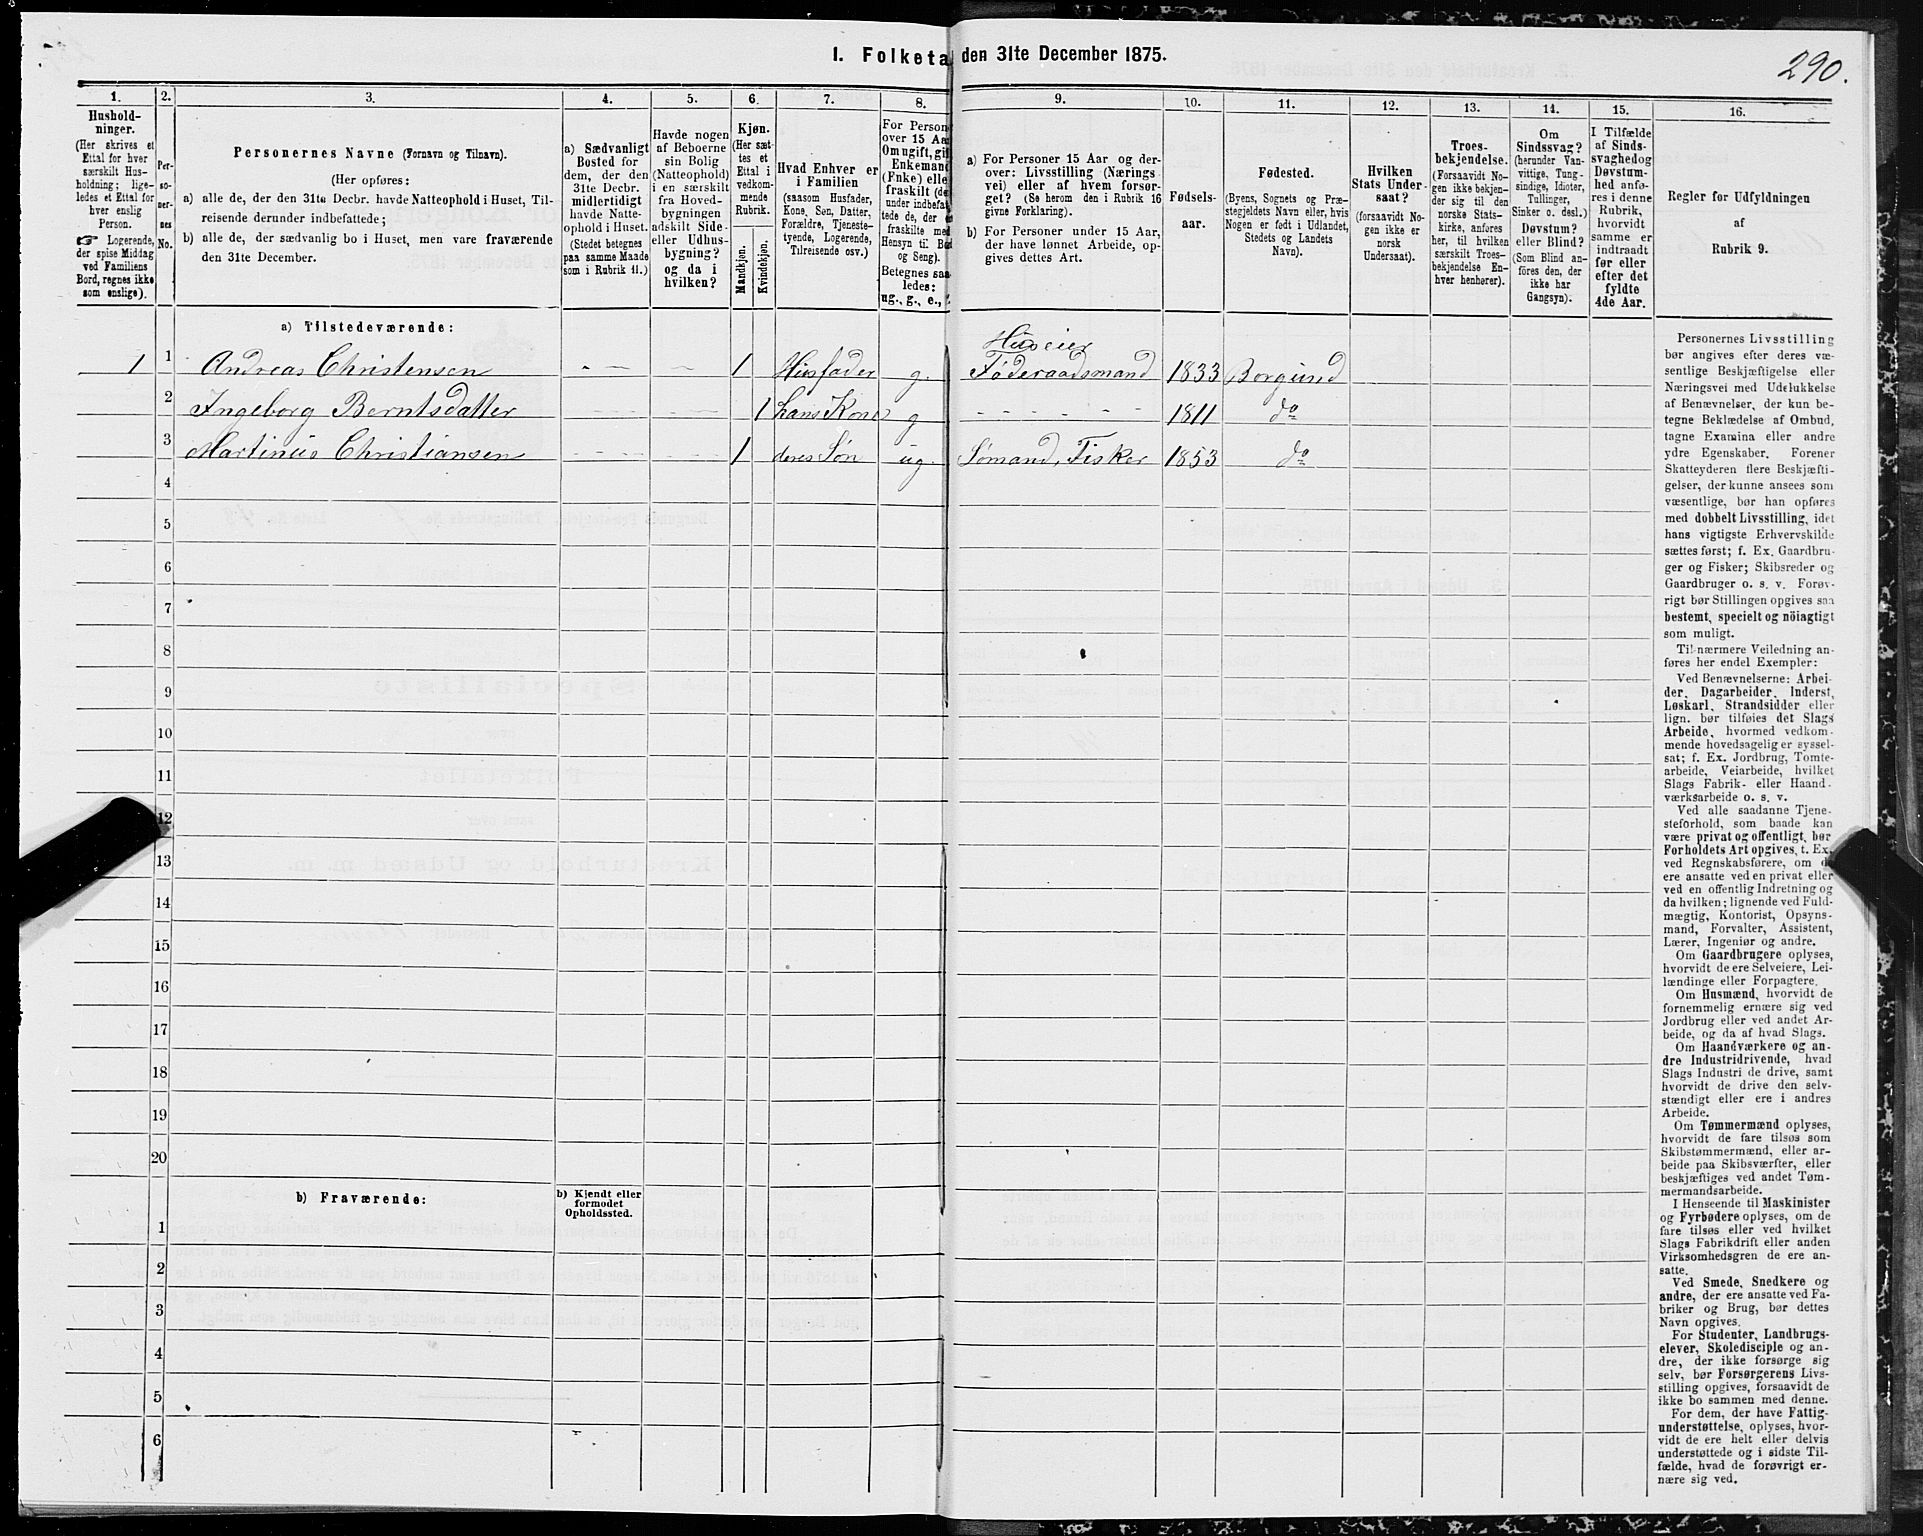 I. Folketa den 31te December 1875.
290.
1.
Hushold-
ninger.
(Her skrives et
Ettal for hver
særskilt Hus-
holdning; lige-
ledes et Ettal for
hver enslig
Person.
☞ Logerende,
der spise Middag
ved Familiens
Bord, regnes ikke
som enslige).
2.
Per-
so-
ner-
nes
No.
3.
Personernes Navne (Fornavn og Tilnavn).
(Her opføres:
a) alle de, der den 31te Decbr. havde Natteophold i Huset, Til-
reisende derunder indbefattede;
b) alle de, der sædvanlig bo i Huset, men vare fraværende
den 31te December.
4.
a) Sædvanligt
Bosted for
dem, der den
31te Decbr.
midlertidigt
havde Natte-
ophold i Huset.
(Stedet betegnes
paa samme Maade
som i Rubrik 11.)
5.
Havde nogen
af Beboerne
sin Bolig
(Natteophold)
i en særskilt
fra Hoved-
bygningen
adskilt Side-
eller Udhus-
bygning?
og da i
hvilken?
6.
Kjøn.
(Her sæt-
tes et
Ettal i
vedkom-
mende
Rubrik.
Mandkjøn.
Kvindekjøn.
7.
Hvad Enhver er
i Familien
(saasom Husfader,
Kone, Søn, Datter,
Forældre, Tjeneste-
tyende, Logerende,
Tilreisende osv.)
8.
For Person
over 15 Aa
Om ugift, gif
Enkemand
(Enke) elle
fraskilt (de
under indbefat
tede de, der
fraskilte med
Hensyn til Bo
og Seng).
Betegnes saa
ledes:
ug., g., e.,
9.
a) For Personer 15 Aar og der-
over: Livsstilling (Nærings
vei) eller af hvem forsør-
get? (Se herom den i Rubrik 16
givne Forklaring).
b) For Personer under 15 Aar,
der have lønnet Arbeide, op-
gives dettes Art.
10.
Fødsels-
aar.
11.
Fødested.
(Byens, Sognets og Præ-
stegjeldets Navn eller, hvis
Nogen er født i Udlandet,
Stedets og Landets
Navn).
12.
Hvilken
Stats Under-
saat?
(forsaavidt No-
gen ikke er
norsk
Undersaat).
13.
Troes-
bekjendelse.
(Forsaavidt No-
gen ikke bekjen-
der sig til den
norske Stats-
kirke, anføres
her, til hvilken
særskilt Troes-
bekjendelse En-
hver henhører).
14.
Om
Sindssvag?
(herunder Van-
vittige, Tung-
sindige, Idioter,
Tullinger,
Sinker o. desl.)
Døvstum?
eller Blind?
(Som Blind an-
føres den, der
ikke har
Gangsyn).
15.
I Tilfælde
af Sinds-
svaghed og
Døvstum-
hed anfø-
res i denne
Rubrik,
hvorvidt
samme er
indtraadt
før eller
efter det
fyldte
4de Aar.
16.
Regler for Udfyldningen
af
Rubrik 9.
a) Tilstedeværende:
1 1 Andreas Christensen - - - 1 Husfader g. Huseier Føderaadsmand 1833 Borgund
2 Ingeborg Berntsdatter - - - - 1 hans Kone g - - - - - - 1811 do
3 Martinus Christiansen - - - - 1 deres Søn ug. Sømand, Fisker 1853 do
4
5
6
7
8
9
10
11
12
13
14
15
16
17
18
19
20
b) Fraværende:
b) Kjendt eller
formodet
Opholdssted.
1
2
3
4
5
6
Personernes Livsstilling
bør angives efter deres væ-
sentlige Beskjæftigelse eller
Næringsvei med Udelukkelse
af Benævnelser, der kun be-
tegne Beklædelse af Ombud,
tagne Examina eller andre
ydre Egenskaber. Forener
Skatteyderen flere Beskjæfti-
gelser, der kunne ansees som
væsentlige, bør han opføres
med dobbelt Livsstilling, idet
hans vigtigste Erhvervskilde
sættes først; f. Ex. Gaardbru-
ger og Fisker; Skibsreder og
Gaardbruger o. s. v. Forøv-
rigt bør Stillingen opgives saa
bestemt, specielt og nöiagtigt
som muligt.
Til nærmere Veiledning an-
føres her endel Exempler:
Ved Benævnelserne: Arbei-
der, Dagarbeider, Inderst,
Løskarl, Strandsidder eller
lign. bør tilføies det Slags
Arbeide, hvormed vedkom-
mende hovedsagelig er syssel-
sat; f. Ex. Jordbrug, Tomte-
arbeide, Veiarbeide, hvilket
Slags Fabrik- eller Haand-
værksarbeide o. s. v.
Ved alle saadanne Tjene-
steforhold, som baade kan
være privat og offentligt, bør
Forholdets Art opgives, t. Ex.
ved Regnskabsførere, om de
ere ansatte ved en privat eller
ved en offentlig Indretning og
da hvilken; lignende ved Fuld-
mægtig, Kontorist, Opsyns-
mand, Forvalter, Assistent,
Lærer, Ingeniør og andre.
Om Gaardbrugere oplyses,
hvorvidt de ere Selveiere, Lei-
lændinge eller Forpagtere.
Om Husmænd, hvorvidt de
fornemmelig ernære sig ved
Jordbrug eller ved andet Ar-
beide, og da af hvad Slags.
Om Haandværkere og an-
dre Industridrivende, hvad
Slags Industri de drive, samt
hvorvidt de drive den selv-
stændigt eller ere i andres
Arbeide.
Om Tømmermænd oplyses,
hvorvidt de fare tilsøs som
Skibstømmermænd, eller ar-
beide paa Skibsværfter, eller
beskjæftiges ved andet Tøm-
mermandsarbeide.
I Henseende til Maskinister
og Fyrbødere oplyses, om de
fare tilsøs eller ved hvilket
Slags Fabrikdrift eller anden
Virksomhedsgren de ere an-
satte.
Ved Smede, Snedkere og
andre, der ere ansatte ved Fa-
briker og Brug, bør dettes
Navn opgives.
For Studenter, Landbrugs-
elever, Skoledisciple og an-
dre, der ikke forsørge sig
selv, bør Forsørgerens Livs-
stilling opgives, forsaavidt de
ikke bo sammen med denne.
For dem, der have Fattig-
understøttelse, oplyses, hvor-
vidt de ere helt eller delvis
understøttede og i sidste Til-
fælde, hvad de forøvrigt er-
nære sig ved.